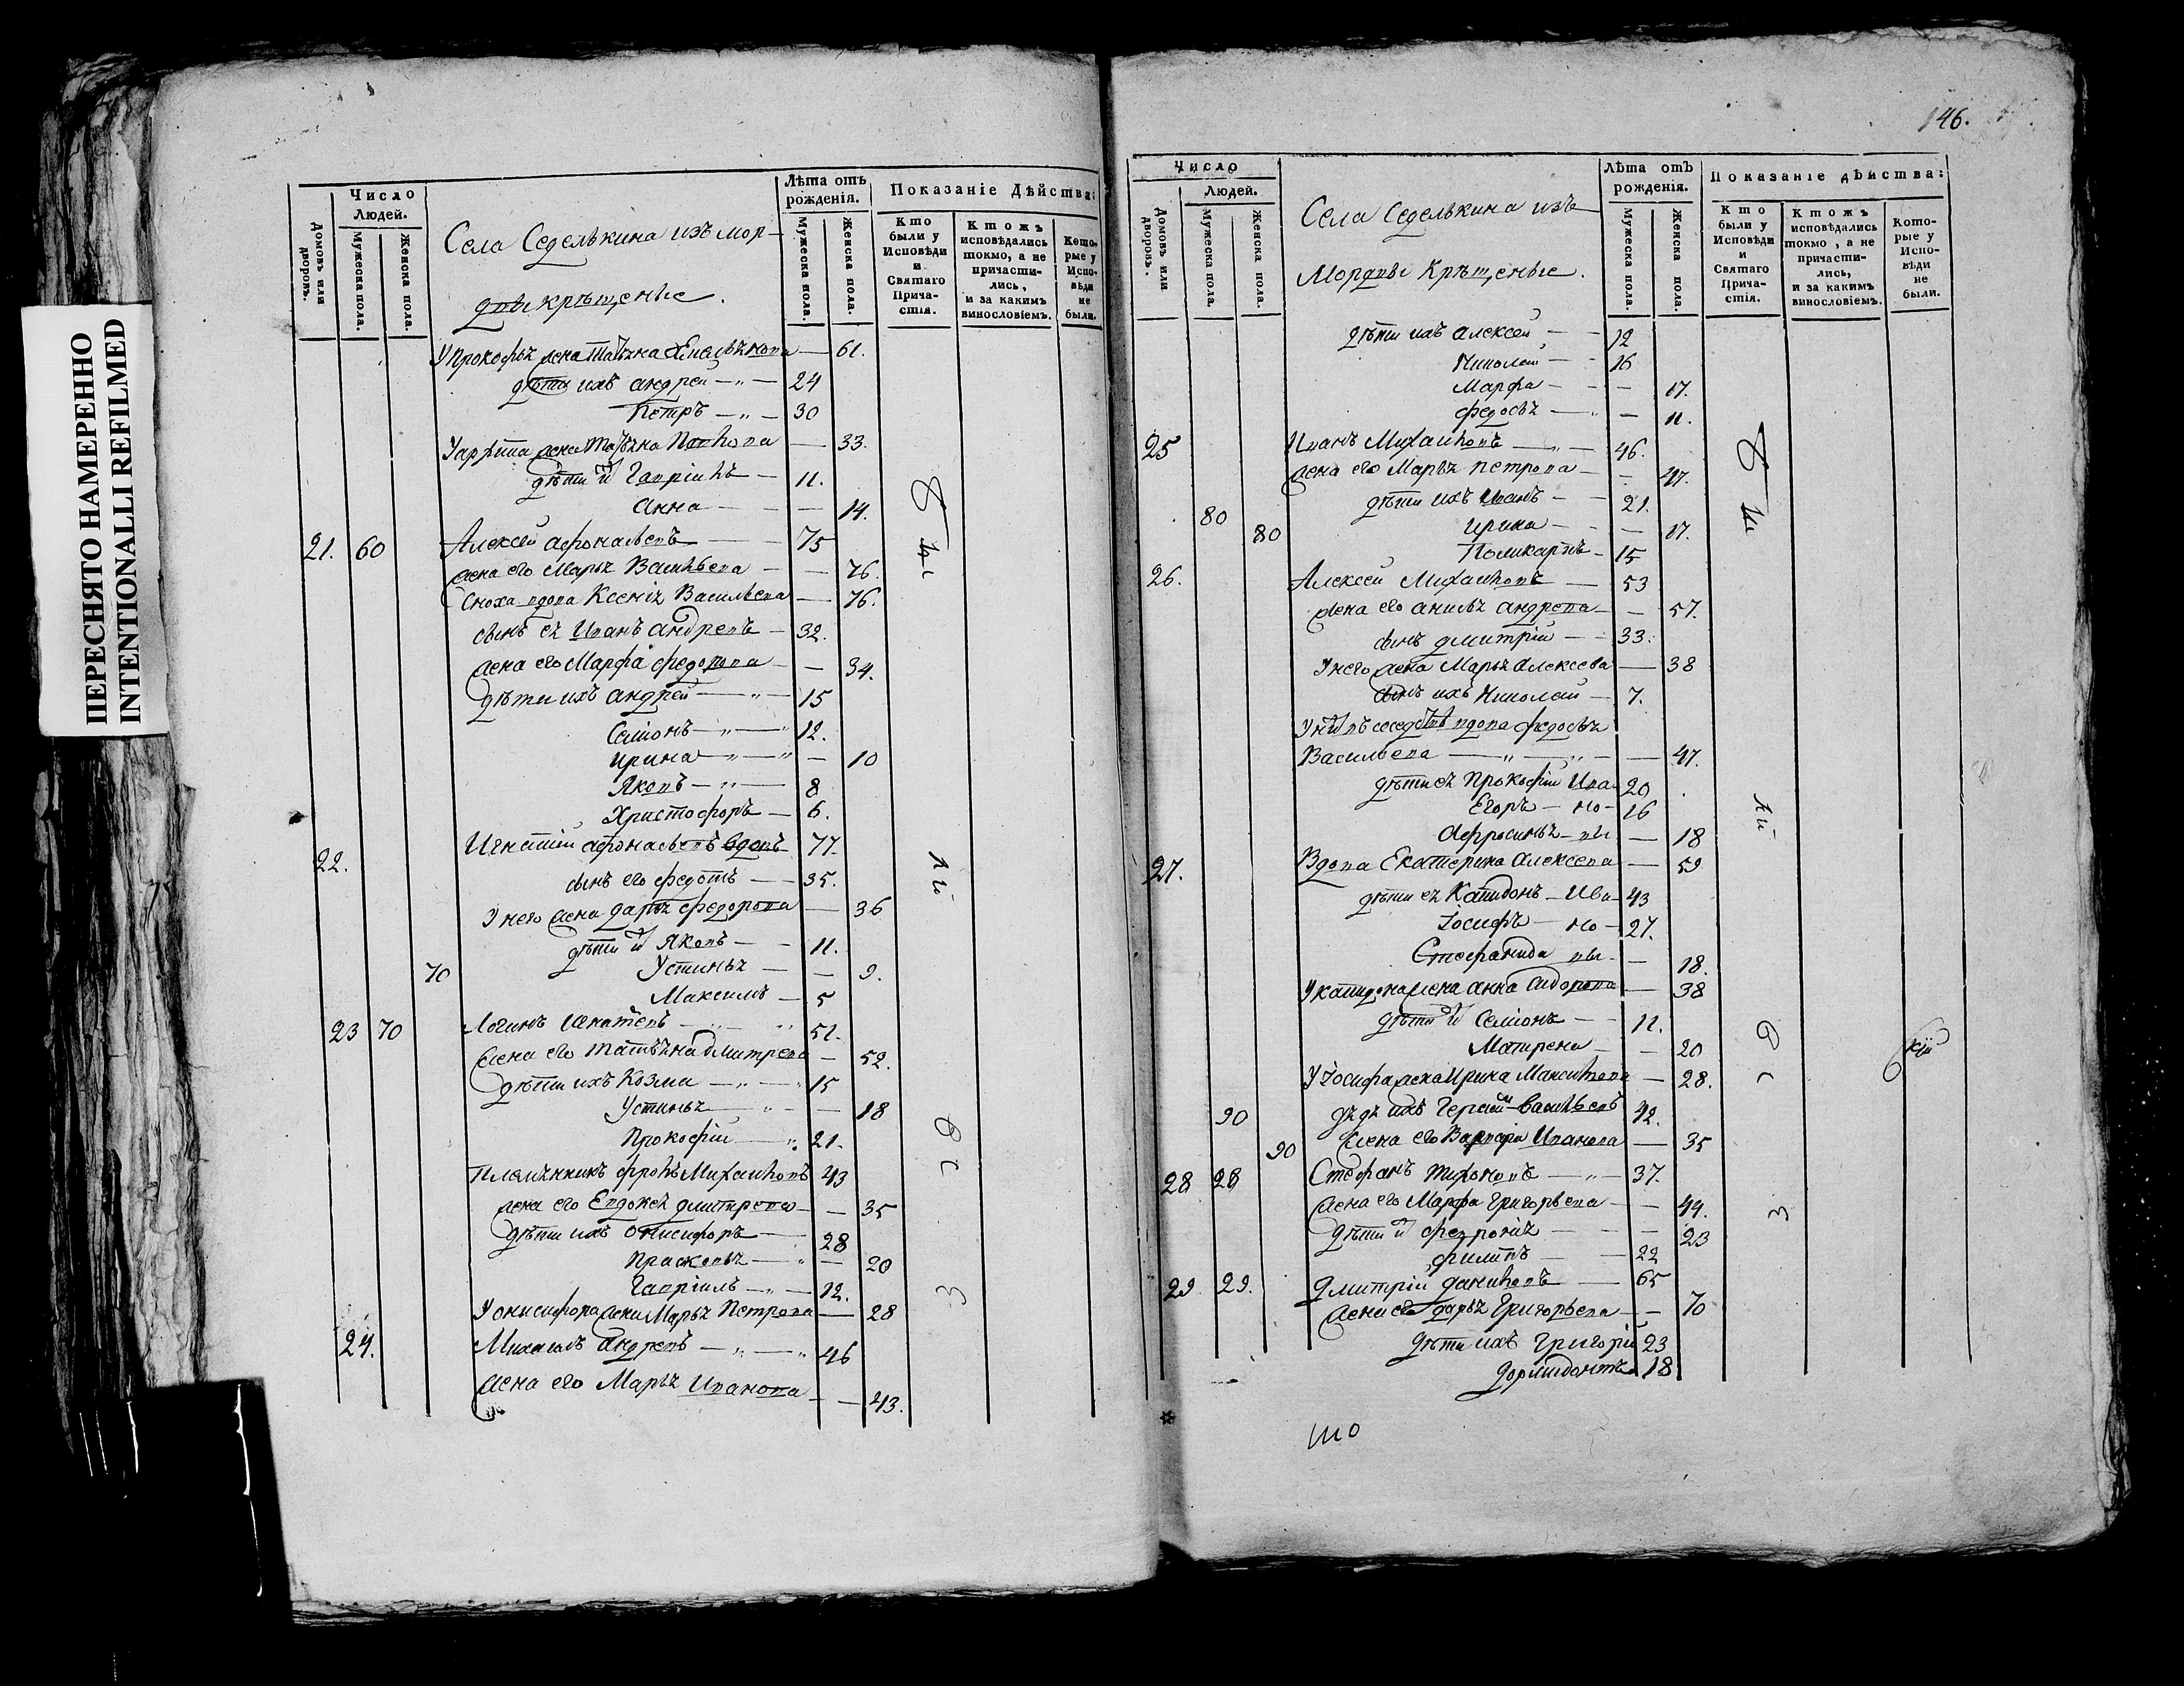 ПЕРЕСНЯТО НАМЕРЕННО
INTENTIONALLI REFILMED
Число
Людей.
Домовъ или дворовъ.
Мужеска пола.
Женска пола.
Села Седелькина изъ мор-
двы крѣщеные.
Лѣта отъ рожденія.
Мужеска пола.
Женска пола.
Показаніе Дѣйства:
Кто были у Исповѣди и Святаго Прича-стія.
Ктожъ исповѣдались токмо, а не причасти-лись, и за какимъ винословіемъ.
Кото-рые у Испо-вѣди не были.
У Прокофья жена Татьяна — 61.
дѣти ихъ андрей — „ — 24
Петръ — „ — 30
жена Татьяна — 33.
дѣти Гавріилъ — 11.
Анна — — 14.
21. 60 Алексей афонасьевъ — 75
жена его Марья Васильева — — 76.
Сноха вдова Ксенія Васильева — 76.
сынъ ея Иванъ андреевъ — 32.
жена его Марфа федотова — — 34.
дѣти ихъ андрей — „ — 15
Семіонъ — „ — 12.
ирина — „ — 10
Яковъ — „ — 8
Христофоръ — 6.
22. Игнатій афонасьевъ вдовъ 77.
сынъ его федотъ — 35.
У него жена дарья федорова — 36
дѣти Яковъ — 11.
70 Устинья — — 9.
Максимъ — 5
23 70 Логинъ Игнатьевъ — „ — 51.
жена его Татьяна дмитрева — 52.
дѣти ихъ Козма — „ — 15
Устинья — „ — 18
Прокофій — „ 21.
Племянникъ фролъ Михаиловъ 43
жена его Евдокея дмитрева — — 35
дѣти ихъ Онисифоръ — 28
Прасковья — „ — 20
Гавріилъ — „ — 12.
У онисифора жена Марья Петрова — 28
24. Михаилъ андреевъ — „ — „ 46
жена его Марья Иванова — — 43.
146.
Число
Людей.
Домовъ или дворовъ.
Мужеска пола.
Женска пола.
Села Седелькина изъ
Мордвы Крѣщеные.
Лѣта отъ рожденія.
Мужеска пола.
Женска пола.
Показаніе дѣйства:
Кто были у Исповѣди и Святаго Прича-стія.
Ктожъ исповѣдались токмо, а не причасти-лись, и за какимъ винословіемъ.
Кото-рые у Испо-вѣди не были.
дѣти ихъ алексей — — 12
Николай — — 16
Марфа — — — 17.
федосья — „ — 11.
25 Иванъ Михаиловъ — „ — 46.
жена его Марья петрова — — 47.
80 дѣти ихъ Иванъ — — 21.
80 ирина — — — 17.
Поликарпъ — 15
26. Алексей Михаиловъ — 53
жена его анисья андрева — — 57.
сынъ дмитрій — — 33.
У него жена Марья алексеева — 38
сынъ ихъ Николай — 7.
вдова федосья
Васильева — „ — „ — — 47.
дѣти ея Прокофій Ива- 20
Егоръ — но- 16
Афросинья — вы — 18
27. Вдова Екатерина алексева — 59
дѣти ея Капидонъ — Ива- 43
Іосифъ — но- 27.
Стефанида вы — — 18.
У капидона жена анна сидорова — 38
дѣти Семіонъ — — 11.
Матрена — — 20
У Іосифа жена Ирина Максимова — 28.
90 дядя ихъ Герасимъ Васильевъ 42.
90 жена его Варвара Иванова — 35
28 28 Стефанъ тихоновъ — „ — 37.
жена его Марфа Григорьева — — 44.
дѣти февронія — — — 23
филипъ — — 22
29 29. Дмитрій даниловъ — 65
жена его дарья Григорьева — — 70
дѣти ихъ Григорій 23
Дормидонтъ 18